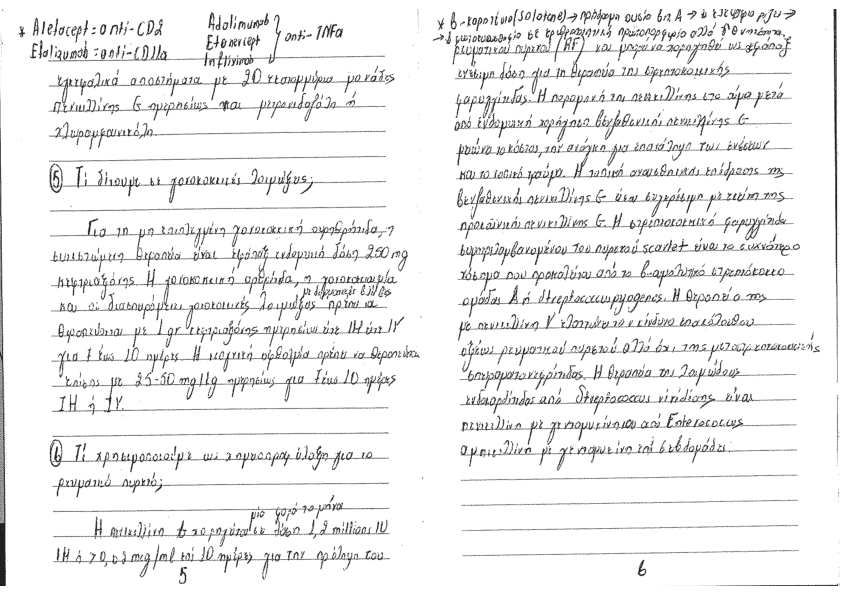 * Alefacept = anti-CD2
Efalizumab = anti-CD11a
Adalimumab
Etanercept
Infliximab
anti-TNFa
εγκεφαλικά αποστήματα με 20 εκατομμύρια μονάδες
πενικιλλίνης G ημερησίως και μετρονιδαζόλη ή
χλωραμφαινικόλη.
⑤ Τί δίνουμε σε γονοκοκκικές λοιμώξεις;
Για τη μη επιπλεγμένη γονοκοκκική ουρηθρίτιδα, η
συνιστώμενη θεραπεία είναι εφάπαξ ενδομυϊκή δόση 250 mg
κεφτριαξόνης. Η γονοκοκκική αρθρίτιδα, η γονοκοκκαιμία
με δερματικές βλάβες
και οι διασπαρμένες γονοκοκκικές λοιμώξεις πρέπει να
θεραπεύονται με 1 gr κεφτριαξόνης ημερησίως είτε IM είτε IV
για 7 έως 10 ημέρες. Η νεογνική οφθαλμία πρέπει να θεραπεύεται
επίσης με 25-50 mg/kg ημερησίως για 7 έως 10 ημέρες
IM ή IV.
⑥ Τί χρησιμοποιούμε ως χημειοπροφύλαξη για το
ρευματικό πυρετό;
μία φορά το μήνα
Η πενικιλλίνη G χορηγείται σε δόση 1,2 millions IU
IM ή >0,02 mcg/ml επί 10 ημέρες για την πρόληψη του
5
* β-καροτένιο (Solatene) → πρόδρομη ουσία βιτ Α → ↓ ελεύθερα ρίζες →
→ ↓ φωτοευαισθησία σε ερυθροποιητική πρωτοπορφυρία αλλά
ρευματικού πυρετού (RF) και μπορεί να χορηγηθεί ως εφάπαξ
ενέσιμη δόση για τη θεραπεία της στρεπτοκοκκικής
φαρυγγίτιδας. Η παραμονή της πενικιλλίνης στο αίμα μετά
από ενδομυϊκή χορήγηση βενζαθενικής πενικιλλίνης G
μειώνει το κόστος, την ανάγκη για επανάληψη των ενέσεων
και το τοπικό τραύμα. Η τοπική αναισθητική επίδραση της
βενζαθενικής πενικιλλίνης G είναι συγκρίσιμη με εκείνη της
προκαϊνικής πενικιλλίνης G. Η στρεπτοκοκκική φαρυγγίτιδα
συμπεριλαμβανομένου του πυρετού scarlet είναι το συχνότερο
νόσημα που προκαλείται από το β-αιμολυτικό στρεπτόκοκκο
ομάδας Α ή Streptococcus pyogenes. Η θεραπεία της
με πενικιλλίνη V ελαττώνει τον κίνδυνο επακόλουθου
οξέως ρευματικού πυρετού αλλά όχι της μεταστρεπτοκοκκικής
σπειραματονεφρίτιδας. Η θεραπεία της λοιμώδους
ενδοκαρδίτιδας από Streptococcus viridans είναι
πενικιλλίνη με γενταμυκίνη και από Enterococcus
αμπικιλλίνη με γενταμυκίνη επί εβδομάδες.
6